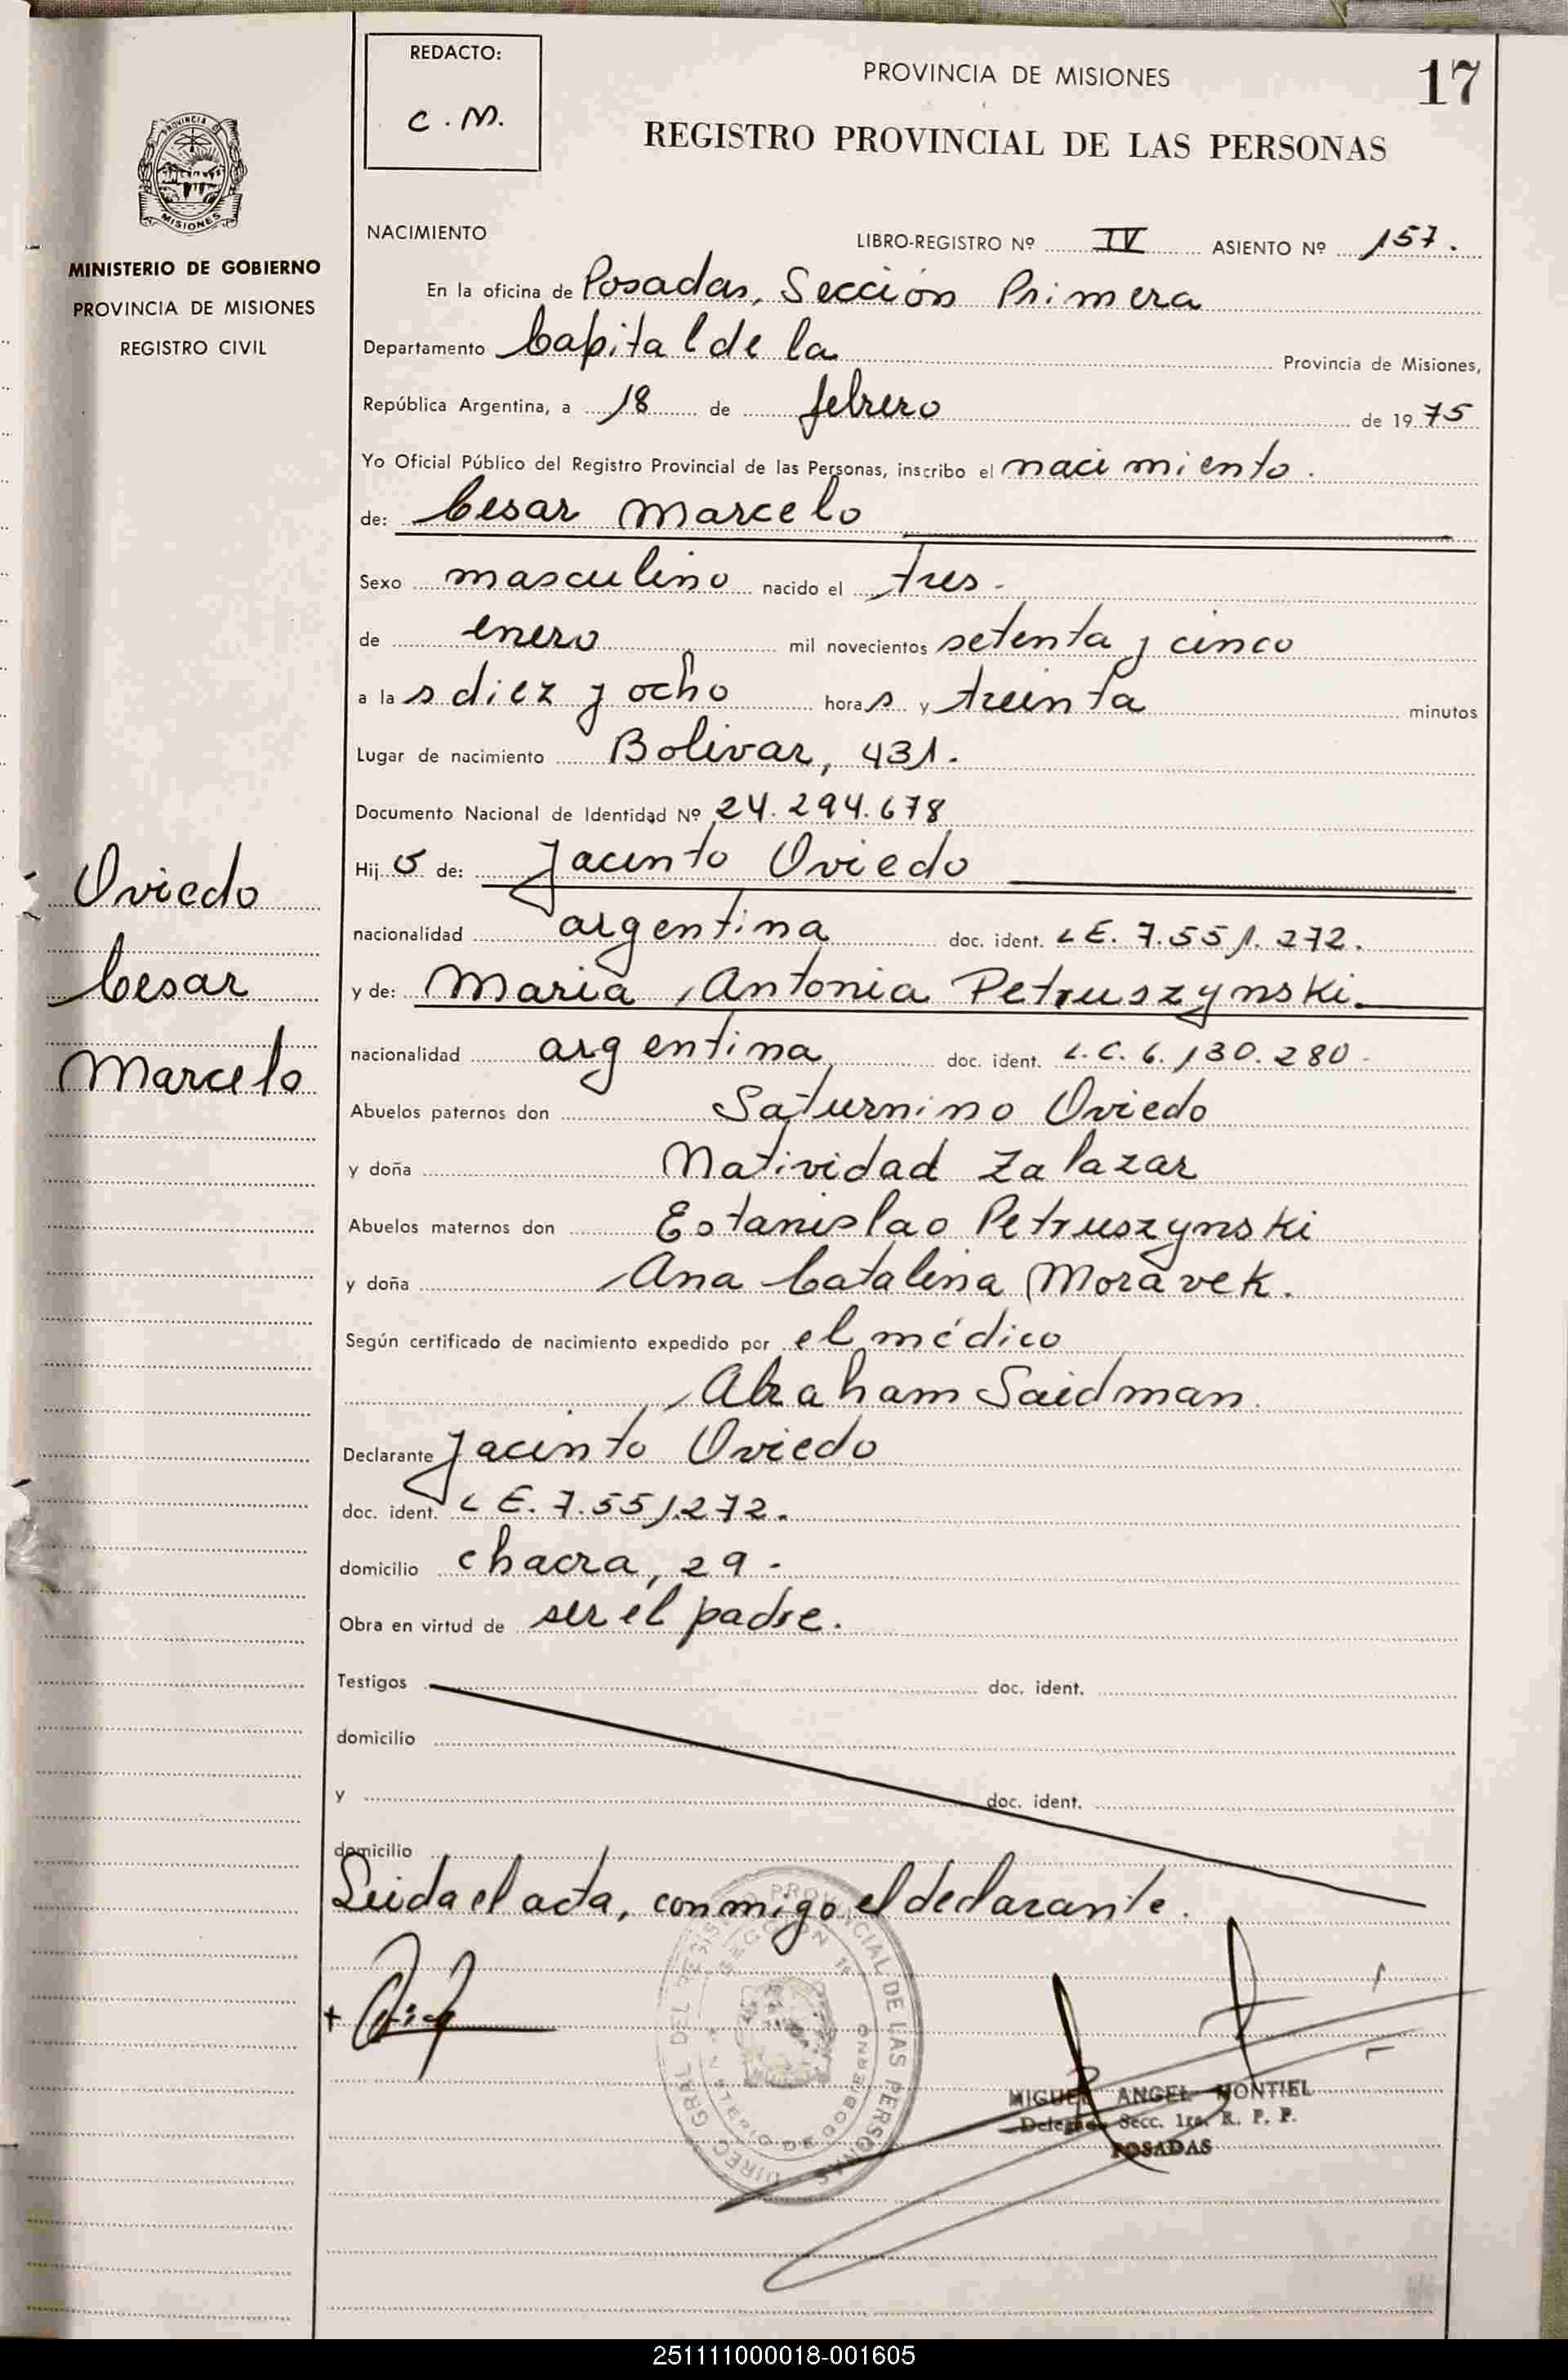 REDACTO:
C. M.
PROVINCIA DE MISIONES
17
REGISTRO PROVINCIAL DE LAS PERSONAS
MISIONES
MINISTERIO DE GOBIERNO
PROVINCIA DE MISIONES
REGISTRO CIVIL
NACIMIENTO
LIBRO-REGISTRO Nº IV ASIENTO Nº 157.
En la oficina de Posadas, Sección Primera
Departamento Capital de la Provincia de Misiones,
República Argentina, a 18 de febrero de 1975
Yo Oficial Público del Registro Provincial de las Personas, inscribo el nacimiento.
de: Cesar Marcelo
Sexo masculino nacido el tres.
de enero mil novecientos setenta y cinco
a las diez y ocho horas y treinta minutos
Lugar de nacimiento Bolivar, 431.
Documento Nacional de Identidad Nº 24.294.678
Hijo de: Jacinto Oviedo
nacionalidad argentina doc. ident. L E. 7.551.272.
y de: Maria Antonia Petruszynski.
nacionalidad argentina doc. ident. L.C. 6.130.280.
Abuelos paternos don Saturnino Oviedo
y doña Natividad Zalazar
Abuelos maternos don Estanislao Petruszynski
y doña Ana Catalina Moravek.
Según certificado de nacimiento expedido por el médico
Abraham Saidman.
Declarante Jacinto Oviedo
doc. ident. L E. 7.551.272.
domicilio chacra, 29.
Obra en virtud de ser el padre.
Testigos doc. ident.
domicilio
y doc. ident.
domicilio
Leida el acta, conmigo el declarante.
Oviedo
Cesar
Marcelo
DIREC. GRAL DEL REGISTRO PROVINCIAL DE LAS PERSONAS
SECCION 1ª
MINISTERIO DE GOBIERNO
MIGUEL ANGEL MONTIEL
Delegado Secc. 1ra. R. P. P.
POSADAS
251111000018-001605